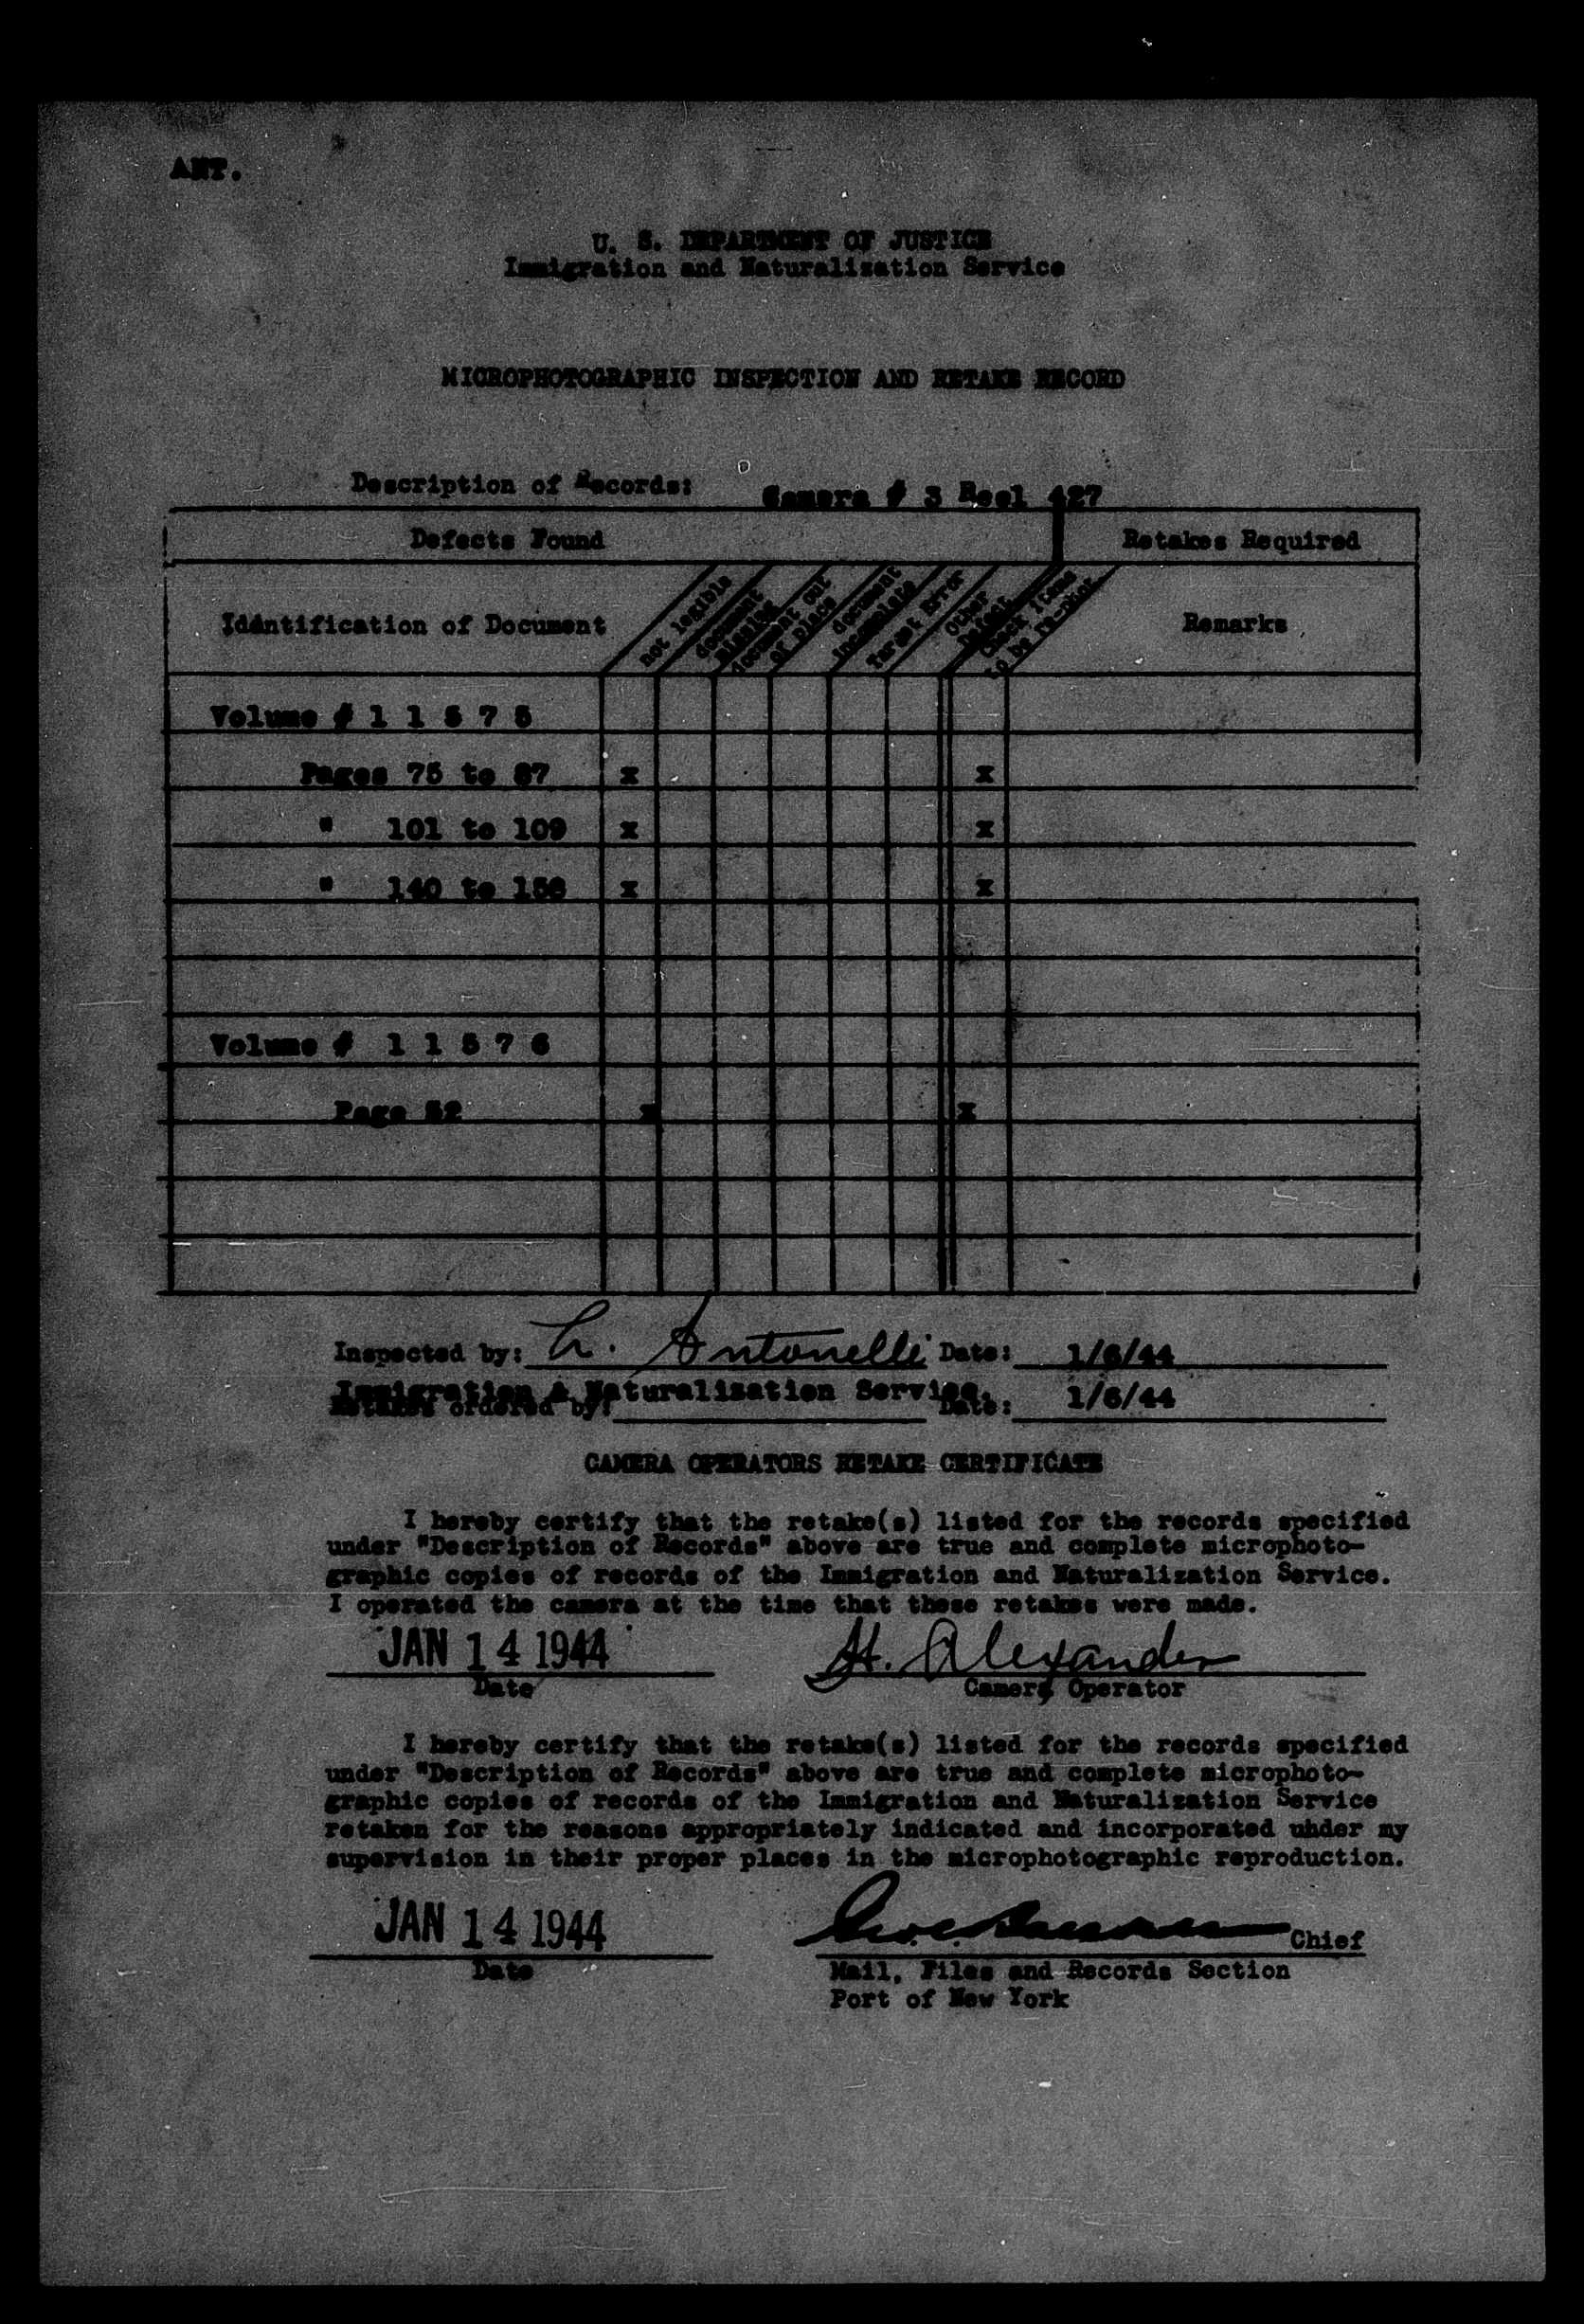 ANT.
U. S. DEPARTMENT OF JUSTICE
Immigration and Naturalization Service
MICROPHOTOGRAPHIC INSPECTION AND RETAKE RECORD
Description of Records: Camera # 3 Reel 427
Defects Found Retakes Required
Idantification of Document not legible document missing document out of place document incomplete Target Error Other Defect Check items to be re-phot Remarks
Volume # 1 1 5 7 5
Pages 75 to 87 x x
" 101 to 109 x x
" 140 to 158 x x
Volume # 1 1 5 7 6
Page 52 x x
Inspected by: Antonelli Date: 1/6/44
Immigration & Naturalization Service.
Retakes ordered by: Date: 1/6/44
CAMERA OPERATORS RETAKE CERTIFICATE
I hereby certify that the retake(s) listed for the records specified
under "Description of Records" above are true and complete microphoto-
graphic copies of records of the Immigration and Naturalization Service.
I operated the camera at the time that these retakes were made.
JAN 14 1944 H. Alexander
Date Camera Operator
I hereby certify that the retake(s) listed for the records specified
under "Description of Records" above are true and complete microphoto-
graphic copies of records of the Immigration and Naturalization Service
retaken for the reasons appropriately indicated and incorporated uhder my
supervision in their proper places in the microphotographic reproduction.
JAN 14 1944 Chief
Date Mail, Files and Records Section
Port of New York